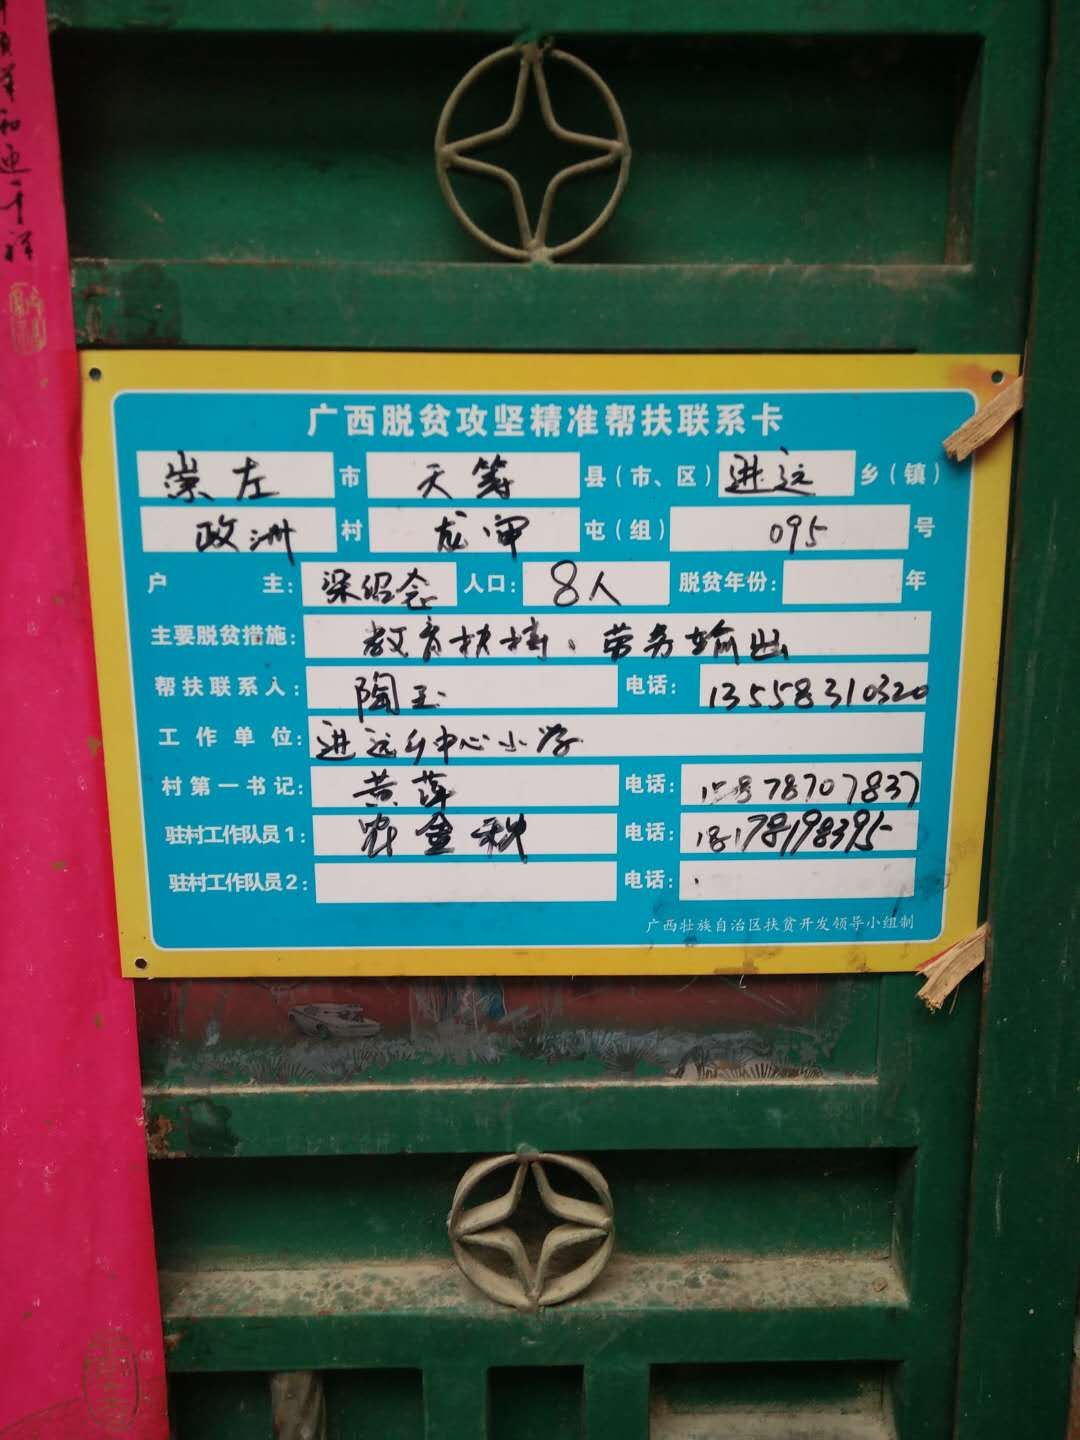 广西脱贫攻坚精准帮扶联系卡
崇左 市 天等 县（市、区） 进远 乡（镇）
政洲 村 龙审 屯（组） 095 号
户 主： 梁绍念 人口： 8人 脱贫年份： 年
主要脱贫措施： 教育扶持、劳务输出
帮扶联系人： 陶玉 电话： 13558310320
工作单位： 进远乡中心小学
村第一书记： 黄萍 电话： 78707837
驻村工作队员1： 农金秋 电话： 18178198395
驻村工作队员2： 电话：
广西壮族自治区扶贫开发领导小组制